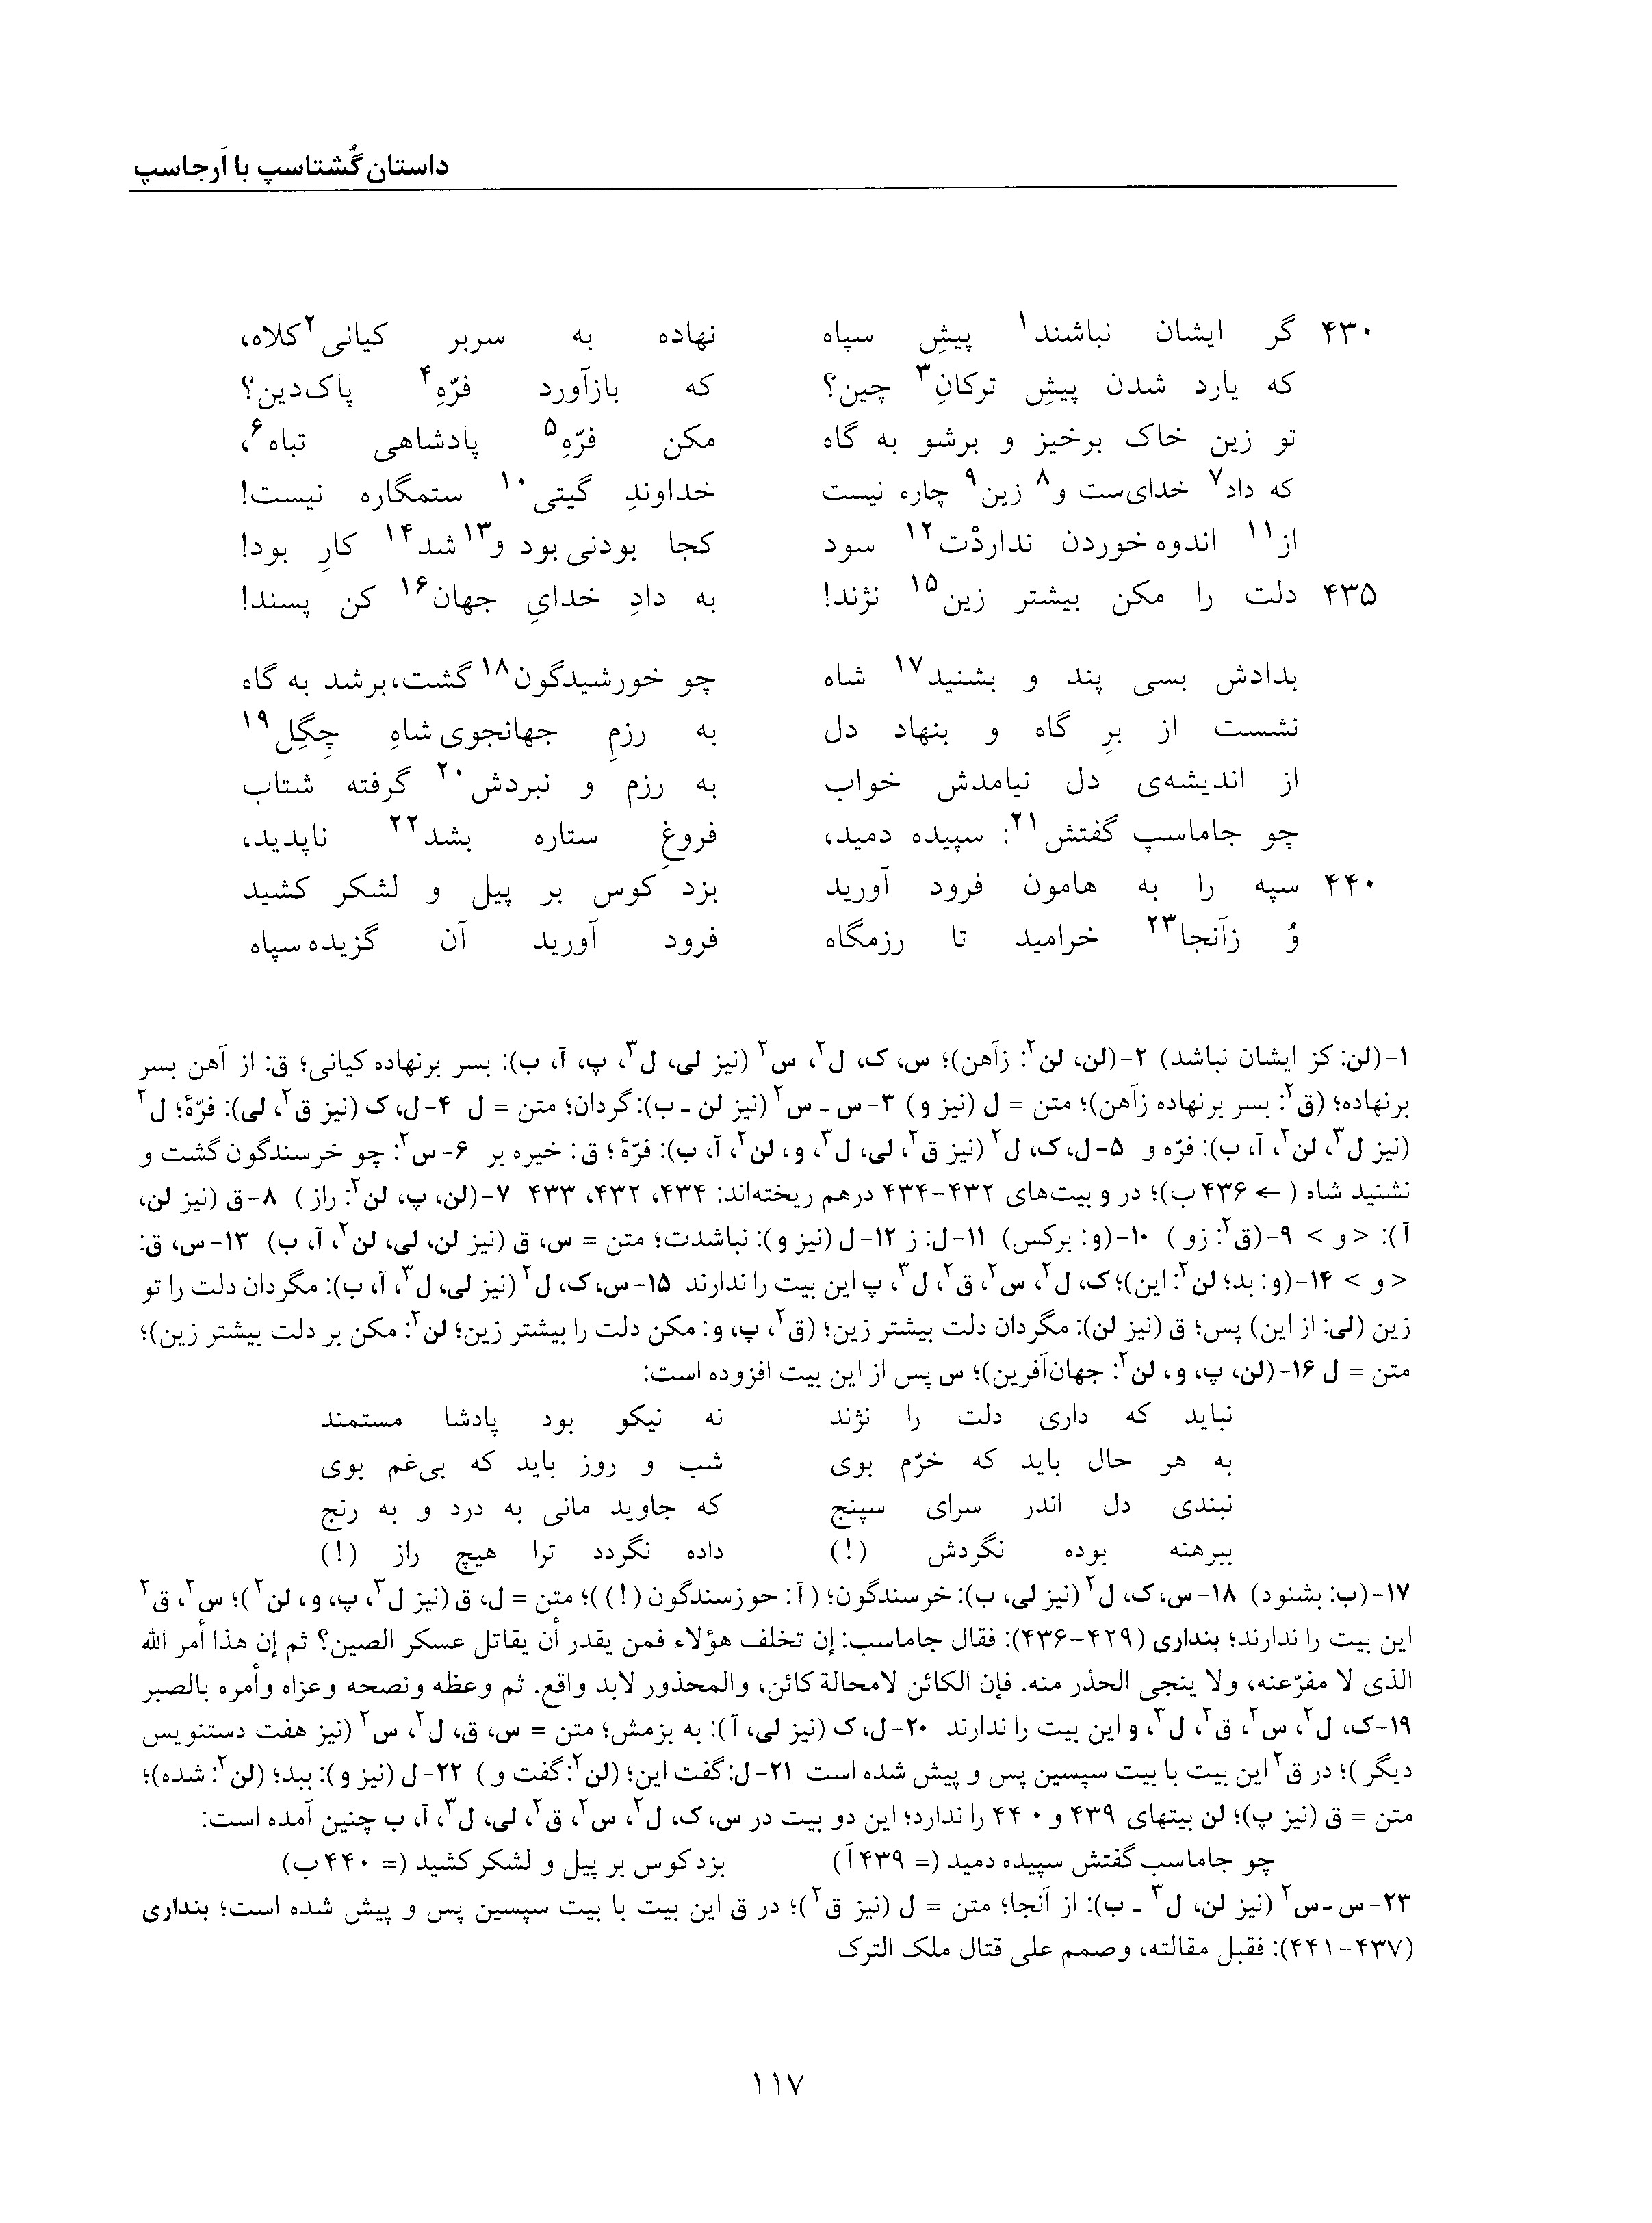 داستان گُشتاسپ با اَرجاسپ
۴۳۰ گر ایشان نباشند۱ پیشِ سپاه نهاده به سربر کیانی۲ کلاه،
که یارد شدن پیشِ ترکانِ۳ چین؟ که بازآورد فرّهِ۴ پاک‌دین؟
تو زین خاک برخیز و برشو به گاه مکن فرّهِ۵ پادشاهی تباه۶،
که داد۷ خدای‌ست و۸ زین۹ چاره نیست خداوندِ گیتی۱۰ ستمگاره نیست!
از۱۱ اندوه خوردن نداردْت۱۲ سود کجا بودنی بود و۱۳ شد۱۴ کارِ بود!
۴۳۵ دلت را مکن بیشتر زین۱۵ نژند! به دادِ خدایِ جهان۱۶ کن پسند!
بدادش بسی پند و بشنید۱۷ شاه چو خورشیدگون۱۸ گشت، برشد به گاه
نشست از برِ گاه و بنهاد دل به رزمِ جهانجوی شاهِ چِگِل۱۹
از اندیشه‌ی دل نیامدش خواب به رزم و نبردش۲۰ گرفته شتاب
چو جاماسپ گفتش۲۱: سپیده دمید، فروغِ ستاره بشد۲۲ ناپدید،
۴۴۰ سپه را به هامون فرود آورید بزد کوس بر پیل و لشکر کشید
وُ زآنجا۲۳ خرامید تا رزمگاه فرود آورید آن گزیده سپاه
۱-(لن: کز ایشان نباشد) ۲-(لن، لن۲: زآهن)؛ س، ک، ل۲، س۲ (نیز لی، ل۳، پ، آ، ب): بسر برنهاده کیانی؛ ق: از آهن بسر
برنهاده؛ (ق۲: بسر برنهاده زآهن)؛ متن = ل (نیز و) ۳-س ـ س۲ (نیز لن ـ ب): گردان؛ متن = ل ۴-ل، ک (نیز ق۲، لی): فرّۀ؛ ل۲
(نیز ل۳، لن۲، آ، ب): فرّه و ۵-ل، ک، ل۲ (نیز ق۲، لی، ل۳، و، لن۲، آ، ب): فرّۀ؛ ق: خیره بر ۶-س۲: چو خرسندگون گشت و
نشنید شاه (← ۴۳۶ ب)؛ در و بیت‌های ۴۳۲-۴۳۴ درهم ریخته‌اند: ۴۳۴، ۴۳۲، ۴۳۳ ۷-(لن، پ، لن۲: راز) ۸-ق (نیز لن،
آ): <و> ۹-(ق۲: زو) ۱۰-(و: برکس) ۱۱-ل: ز ۱۲-ل (نیز و): نباشدت؛ متن = س، ق (نیز لن، لی، لن۲، آ، ب) ۱۳-س، ق:
<و> ۱۴-(و: بد؛ لن۲: این)؛ ک، ل۲، س۲، ق۲، ل۳، پ این بیت را ندارند ۱۵-س، ک، ل۲ (نیز لی، ل۳، آ، ب): مگردان دلت را تو
زین (لی: از این) پس؛ ق (نیز لن): مگردان دلت بیشتر زین؛ (ق۲، پ، و: مکن دلت را بیشتر زین؛ لن۲: مکن بر دلت بیشتر زین)؛
متن = ل ۱۶-(لن، پ، و، لن۲: جهان‌آفرین)؛ س پس از این بیت افزوده است:
نباید که داری دلت را نژند نه نیکو بود پادشا مستمند
به هر حال باید که خرّم بوی شب و روز باید که بی‌غم بوی
نبندی دل اندر سرای سپنج که جاوید مانی به درد و به رنج
ببرهنه بوده نگردش (!) داده نگردد ترا هیچ راز (!)
۱۷-(ب: بشنود) ۱۸-س، ک، ل۲ (نیز لی، ب): خرسندگون؛ (آ: حوزسندگون (!))؛ متن = ل، ق (نیز ل۳، پ، و، لن۲)؛ س۲، ق۲
این بیت را ندارند؛ بنداری (۴۲۹-۴۳۶): فقال جاماسب: إن تخلف هؤلاء فمن یقدر أن یقاتل عسکر الصین؟ ثم إن هذا أمر الله
الذی لا مفرّعنه، ولا ینجی الحذر منه. فإن الکائن لامحالة کائن، والمحذور لابد واقع. ثم وعظه ونصحه وعزاه وأمره بالصبر
۱۹-ک، ل۲، س۲، ق۲، ل۳، و این بیت را ندارند ۲۰-ل، ک (نیز لی، آ): به بزمش؛ متن = س، ق، ل۲، س۲ (نیز هفت دستنویس
دیگر)؛ در ق۲ این بیت با بیت سپسین پس و پیش شده است ۲۱-ل: گفت این؛ (لن۲: گفت و) ۲۲-ل (نیز و): ببد؛ (لن۲: شده)؛
متن = ق (نیز پ)؛ لن بیتهای ۴۳۹ و ۴۴۰ را ندارد؛ این دو بیت در س، ک، ل۲، س۲، ق۲، لی، ل۳، آ، ب چنین آمده است:
چو جاماسب گفتش سپیده دمید (= ۴۳۹ آ) بزد کوس بر پیل و لشکر کشید (= ۴۴۰ ب)
۲۳-س ـ س۲ (نیز لن، ل۳ ـ ب): از آنجا؛ متن = ل (نیز ق۲)؛ در ق این بیت با بیت سپسین پس و پیش شده است؛ بنداری
(۴۳۷-۴۴۱): فقبل مقالته، وصمم علی قتال ملک الترک
۱۱۷